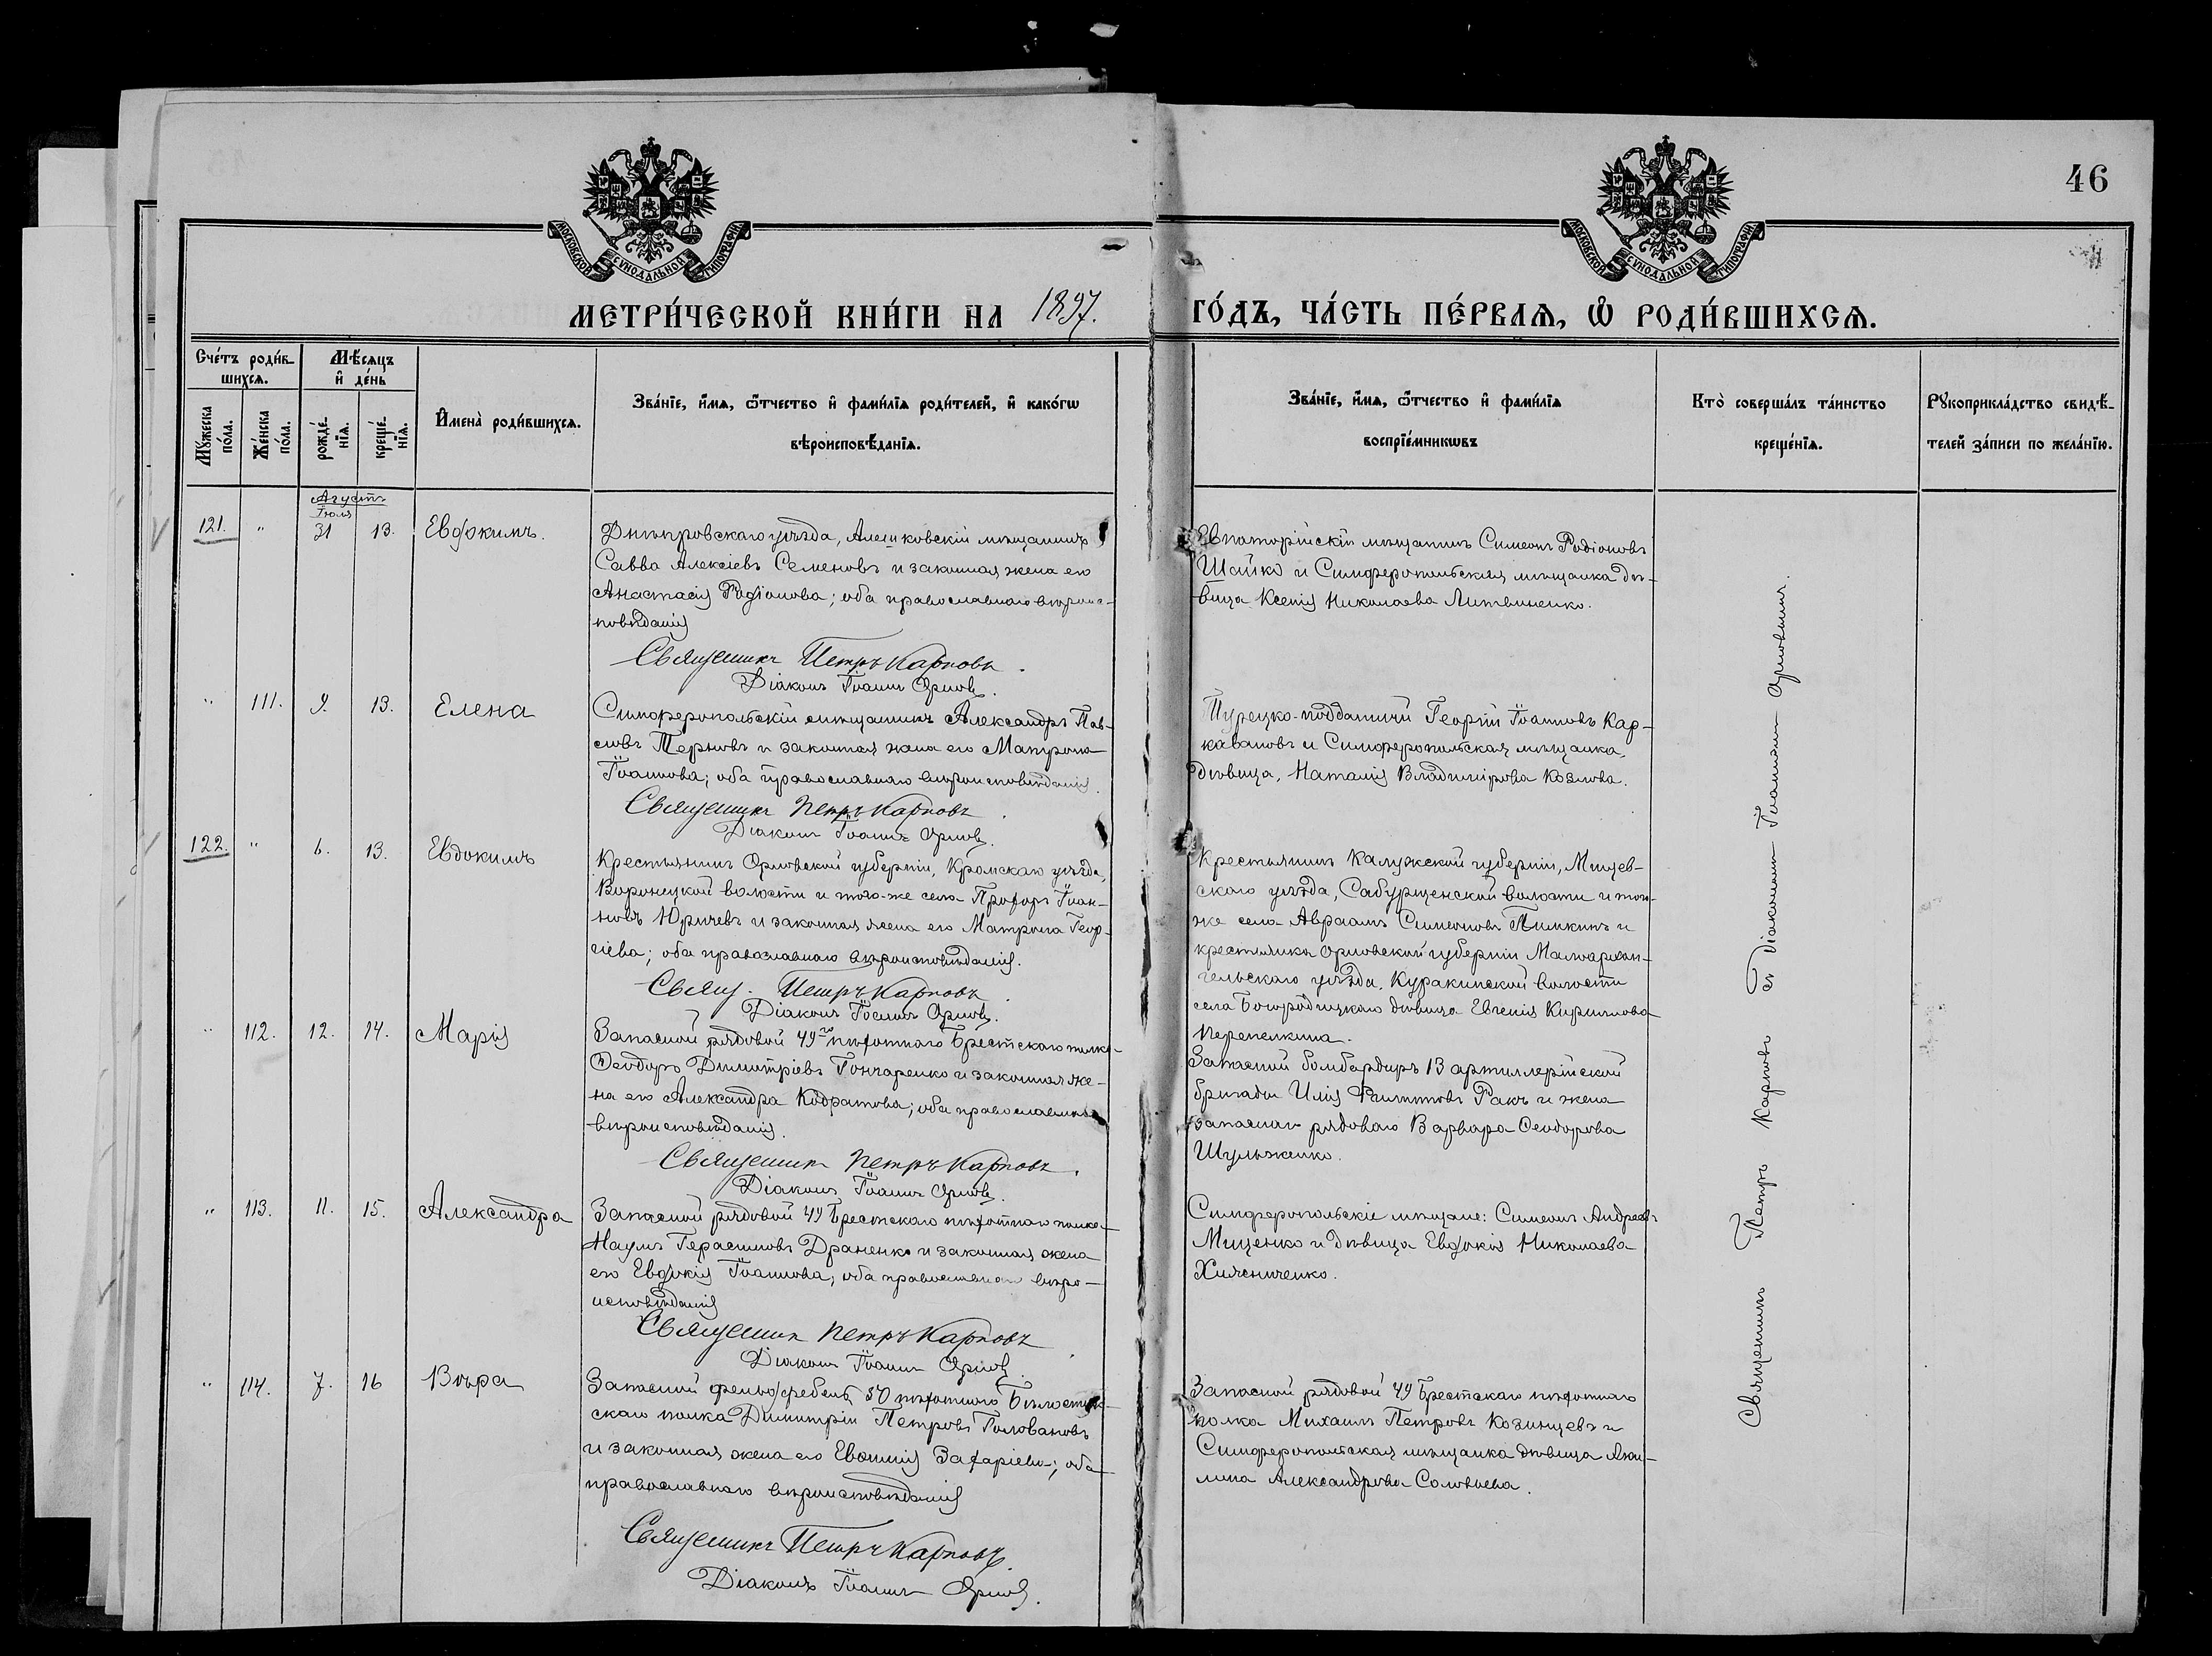 46
МОСКОВСКОЙ СѴНОДАЛЬНОЙ ТИПОГРАФІИ
МОСКОВСКОЙ СѴНОДАЛЬНОЙ ТИПОГРАФІИ
МЕТРИ́ЧЕСКОЙ КНИ́ГИ НА 1897. ГО́ДЪ, ЧА́СТЬ ПЕ́РВАѦ, Ѡ҆ РОДИ́ВШИХСѦ.
Сче́тъ роди́в-
шихсѧ.
Мѣ́сѧцъ
и҆ де́нь
Мꙋ́жеска по́ла.
Же́нска по́ла.
рожде́-
нїѧ.
креще́-
нїѧ.
И҆мена̀ роди́вшихсѧ.
Зва́нїе, и҆́мѧ, ѻ҆́тчество и҆ фами́лїѧ роди́телей, и҆ како́гѡ
вѣроисповѣ́данїѧ.
Зва́нїе, и҆́мѧ, ѻ҆́тчество и҆ фами́лїѧ
воспрїе́мникѡвъ
Кто̀ соверша́лъ та́инство
креще́нїѧ.
Рꙋкоприкла́дство свидѣ́-
телей за́писи по жела́нїю.
Августъ
Іюля
121. " 31 13. Евдокимъ.
Днѣпровскаго уѣзда, Алешковскій мѣщанинъ
Савва Алексіевъ Семеновъ и законная жена его
Анастасія Родіонова; оба православнаго вѣроис-
повѣданія
Священникъ Петръ Карповъ.
Діаконъ Іоаннъ Орловъ.
Евпаторійскій мѣщанинъ Симеонъ Родіоновъ
Шайко и Симферопольская мѣщанка дѣ-
вица Ксенія Николаева Литвиненко.
" 111. 9. 13. Елена
Симферопольскій мѣщанинъ Александръ Пав-
ловъ Терновъ и законная жена его Матрона
Іоаннова; оба православнаго вѣроисповѣданія.
Священникъ Петръ Карповъ.
Діаконъ Іоаннъ Орловъ.
Турецко-подданный Георгій Іоанновъ Кар-
кавановъ и Симферопольская мѣщанка,
дѣвица, Наталія Владимірова Козлова.
122. " 6. 13. Евдокимъ
Крестьянинъ Орловской губерніи, Кромскаго уѣзда,
Воронецкой волости и того-же села Прохоръ Іоан-
новъ Юричевъ и законная жена его Матрона Геор-
гіева; оба православнаго вѣроисповѣданія.
Свящ. Петръ Карповъ.
Діаконъ Іоаннъ Орловъ.
Крестьянинъ Калужской губерніи, Мищев-
скаго уѣзда, Сабурщенской волости и того-
же села Авраамъ Симеоновъ Пимкинъ и
крестьянка Орловской губерніи Малоархан-
гельскаго уѣзда, Куракинской волости
села Богородицкаго дѣвица Евгенія Кириллова
Перепелкина.
" 112. 12. 14. Марія
Запасной рядовой 49го пѣхотнаго Брестскаго полка
Ѳеодоръ Димитріевъ Гончаренко и законная же-
на его Александра Кодратова; оба православнаго
вѣроисповѣданія.
Священникъ Петръ Карповъ.
Діаконъ Іоаннъ Орловъ.
Запасной бомбардиръ 13 артиллерійской
бригады Илія Филипповъ Ракъ и жена
запаснаго рядоваго Варвара Ѳеодорова
Шульженко.
" 113. 11. 15. Александра
Запасной рядовой 49 Брестскаго пѣхотнаго полка
Наумъ Герасимовъ Драненко и законная жена
его Евдокія Іоаннова; оба православнаго вѣро-
исповѣданія
Священникъ Петръ Карповъ.
Діаконъ Іоаннъ Орловъ.
Симферопольскіе мѣщане: Симеонъ Андреевъ
Мищенко и дѣвица Евдокія Николаева
" 114. 7. 16 Вѣра
Запасной фельдфебель 50 пѣхотнаго Бѣлосток-
скаго полка Димитрій Петровъ Головановъ
и законная жена его Евѳимія Захаріева; оба
православнаго вѣроисповѣданія
Священникъ Петръ Карповъ.
Діаконъ Іоаннъ Орловъ.
Запасной рядовой 49 Брестскаго пѣхотнаго
полка Михаилъ Петровъ Козинцевъ и
Симферопольская мѣщанка дѣвица
Александрова Соловьева.
Священникъ Петръ Карповъ съ Діакономъ Іоанномъ Орловымъ.